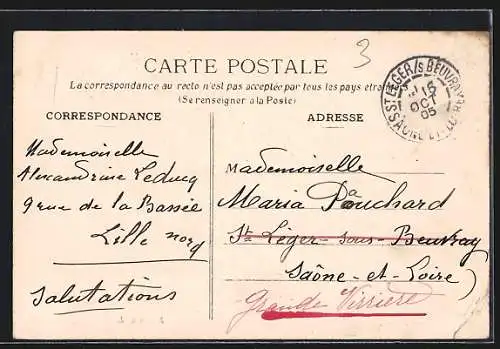 3
CARTE POSTALE
La correspondance au recto n'est pas acceptée par tous les pays étra
(Se renseigner à la Poste)
ST LEGER /s BEUVRAY
15
OCT
05
SAONE ET LOIRE
CORRESPONDANCE
Mademoiselle
Alexandrine Leducq
9 rue de la Bassée
Lille Nord
Salutations
ADRESSE
Mademoiselle
Maria Pauchard
St Léger-sous-Beuvray
Saône-et-Loire)
Grande Verrière